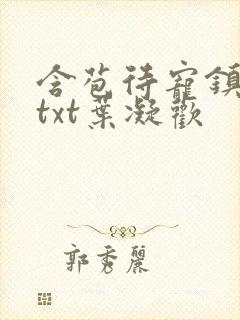 含苞待寵鎮
txt葉凝歡
郭秀麗